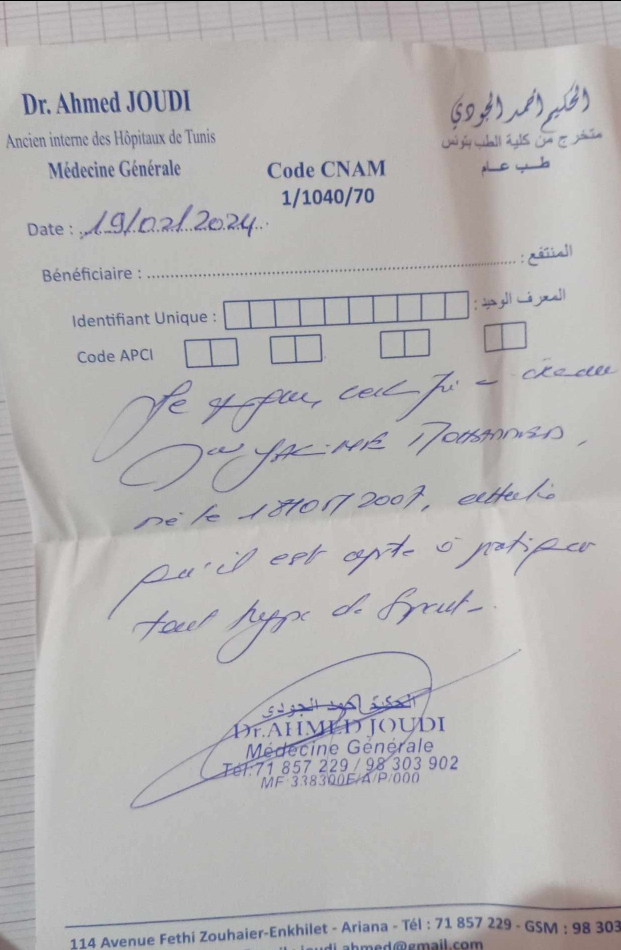 Dr. Ahmed JOUDI
Ancien interne des Hôpitaux de Tunis
Médecine Générale
الحكيم أحمد الجودي
متخرج من كلية الطب بتونس
طب عام
Code CNAM
1/1040/70
Date : 19/02/2024
Bénéficiaire : المنتفع :
Identifiant Unique : المعرف الوحيد :
Code APCI
Je
YACINE
né le 2007, atteste
qu'il est apte à pratiquer
tout type de Sport.
الحكيم أحمد الجودي
Dr.AHMED JOUDI
Médecine Générale
Tél:71 857 229 / 98 303 902
MF 338300E/A/P/000
114 Avenue Fethi Zouhaier-Enkhilet - Ariana - Tél : 71 857 229 - GSM : 98 303
joudi.ahmed@gmail.com